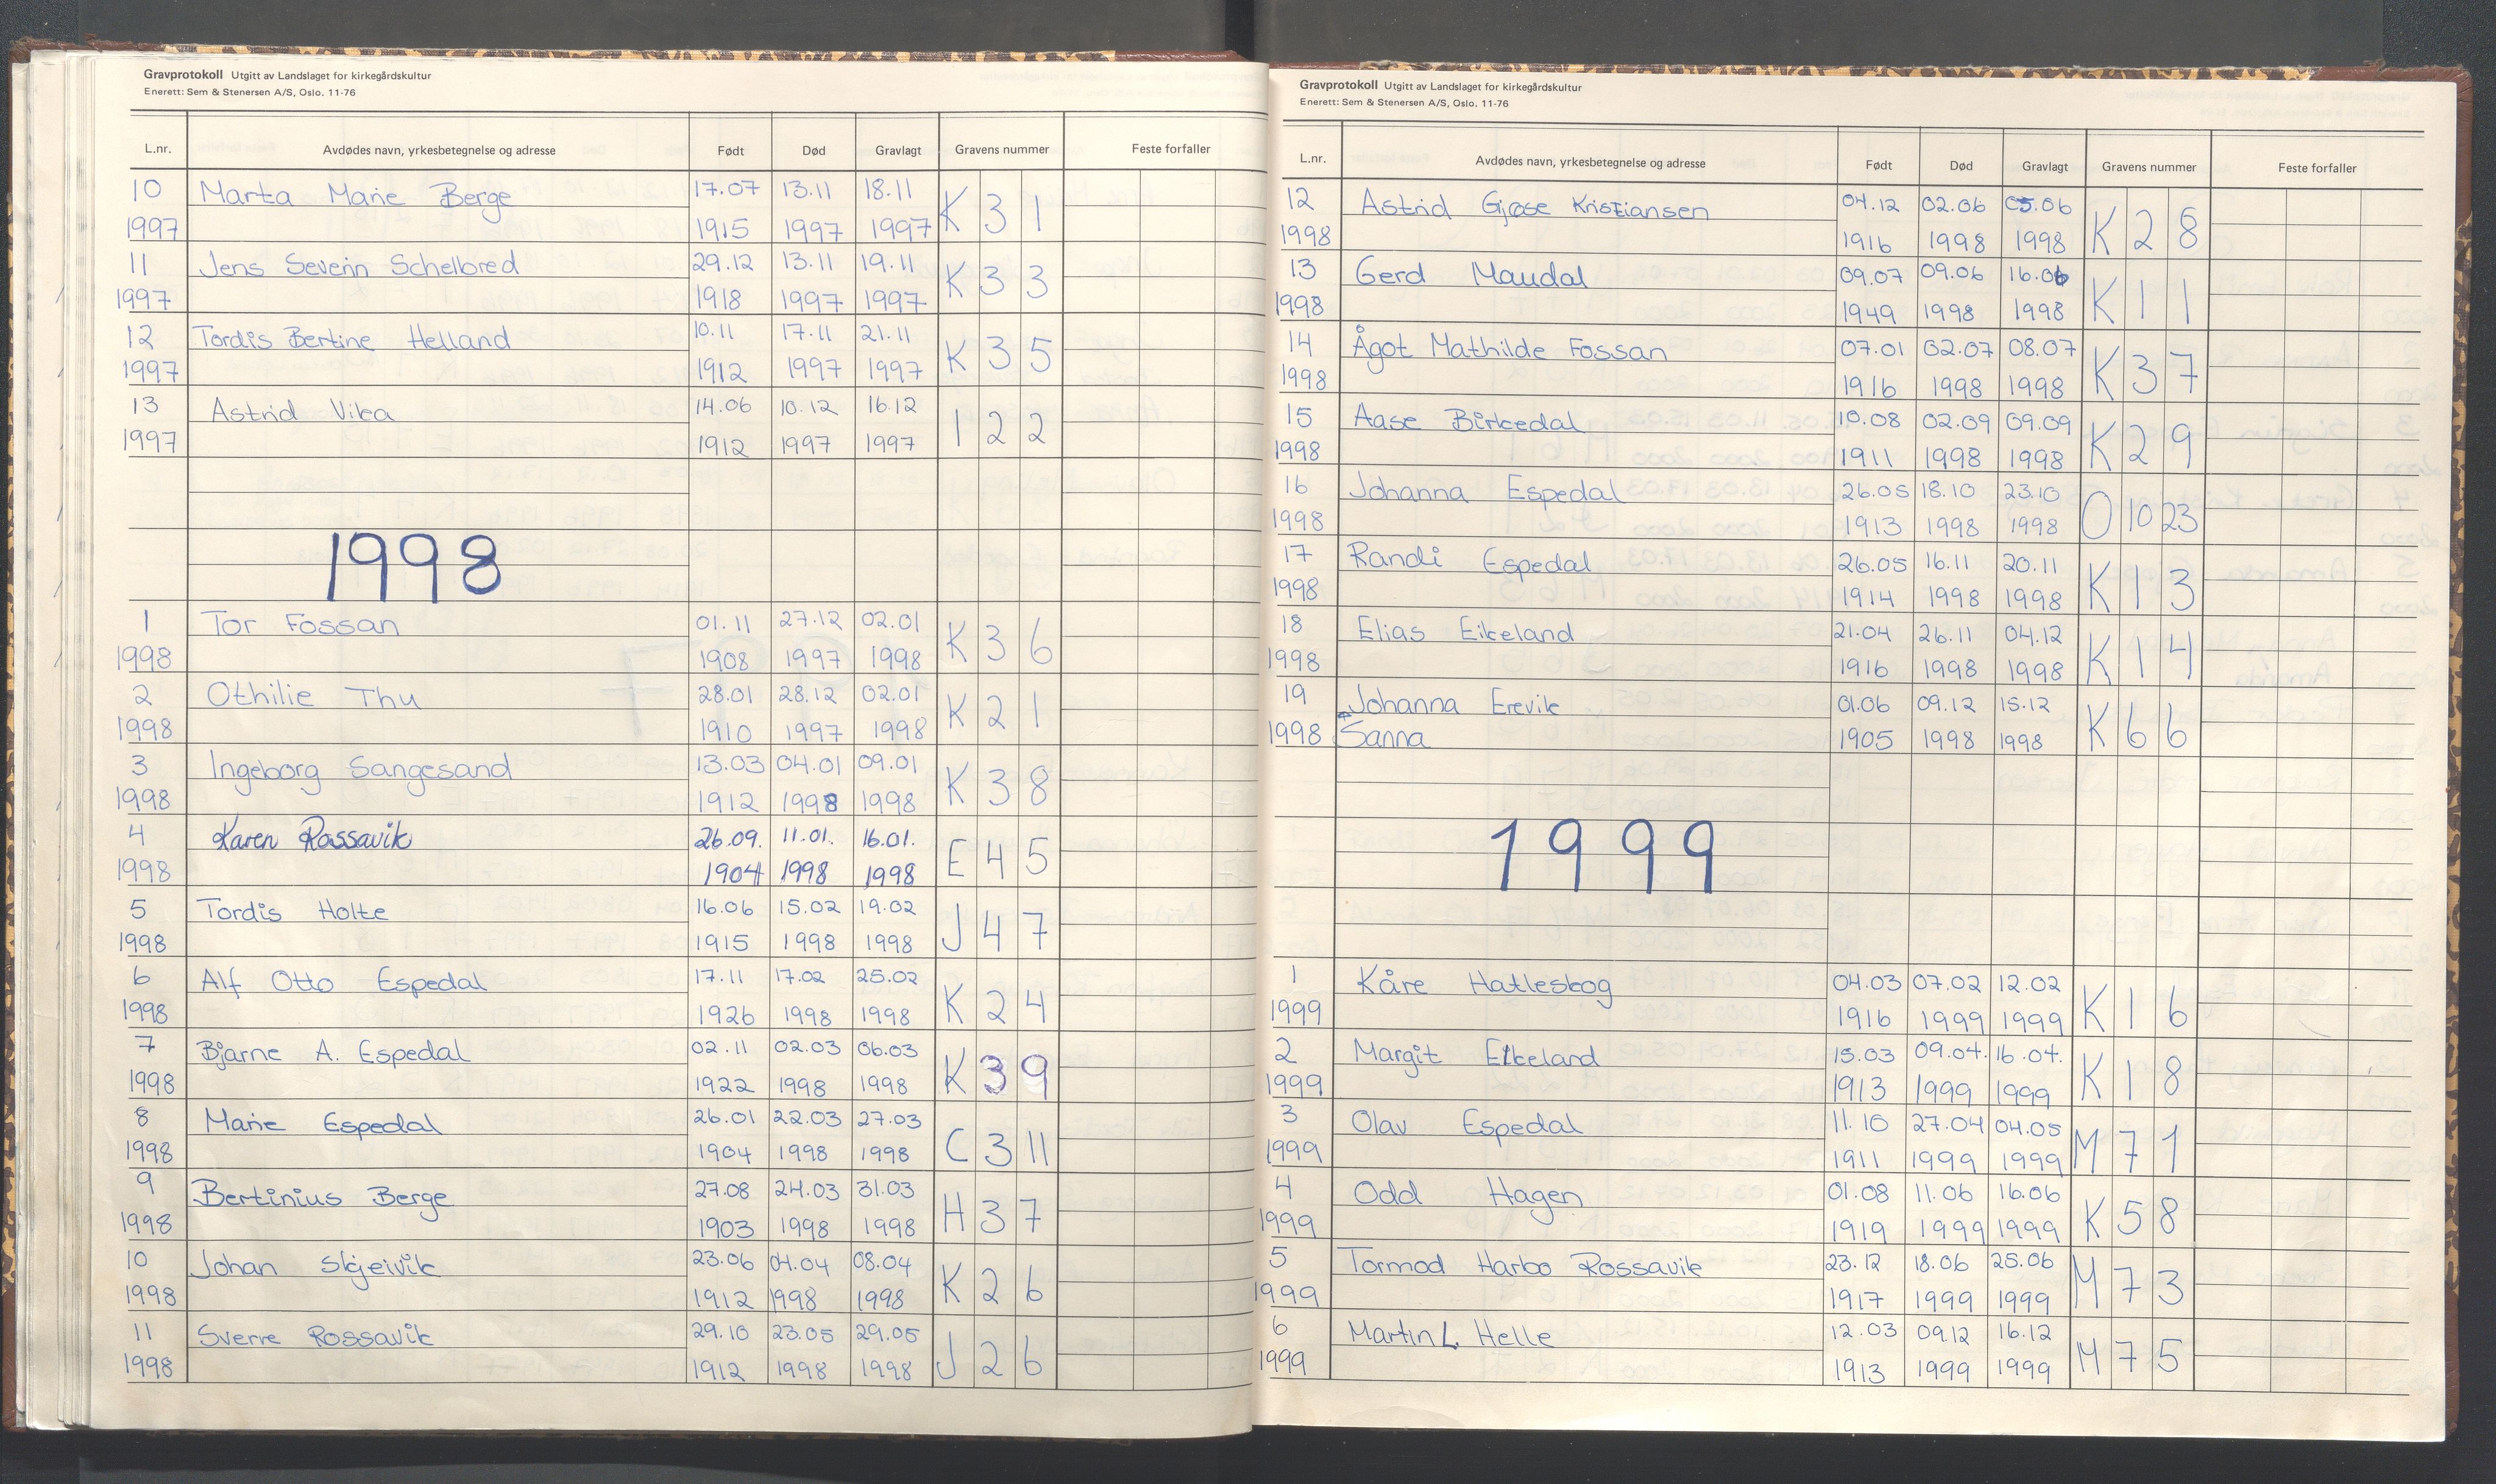 Gravprotokoll Utgitt av Landslaget for kirkegårdskultur
Enerett: Sem & Stenersen A/S, Oslo. 11-76
L.nr. Avdødes navn, yrkesbetegnelse og adresse Født Død Gravlagt Gravens nummer Feste forfaller
10 Marta Marie Berge 17.07 13.11 18.11 K 3 1
1997 1915 1997 1997
11 Jens Severin Schelbred 29.12 13.11 19.11 K 3 3
1997 1918 1997 1997
12 Tordis Bertine Helland 10.11 17.11 21.11 K 3 5
1997 1912 1997 1997
13 Astrid Vika 14.06 10.12 16.12 I 2 2
1997 1912 1997 1997
1998
1 Tor Fossan 01.11 27.12 02.01 K 3 6
1998 1908 1997 1998
2 Othilie Thu 28.01 28.12 02.01 K 2 1
1998 1910 1997 1998
3 Ingeborg Sangesand 13.03 04.01 09.01 K 3 8
1998 1912 1998 1998
4 Karen Rossavik 26.09. 11.01. 16.01. E 4 5
1998 1904 1998 1998
5 Tordis Holte 16.06 15.02 19.02 J 4 7
1998 1915 1998 1998
6 Alf Otto Espedal 17.11 17.02 25.02 K 2 4
1998 1926 1998 1998
7 Bjarne A. Espedal 02.11 02.03 06.03 K 3 9
1998 1922 1998 1998
8 Marie Espedal 26.01 22.03 27.03 C 3 11
1998 1904 1998 1998
9 Bertinius Berge 27.08 24.03 31.03 H 3 7
1998 1903 1998 1998
10 Johan Skjeivik 23.06 04.04 08.04 K 2 6
1998 1912 1998 1998
11 Sverre Rossavik 29.10 23.05 29.05 J 2 6
1998 1912 1998 1998
Gravprotokoll Utgitt av Landslaget for kirkegårdskultur
Enerett: Sem & Stenersen A/S, Oslo. 11-76
L.nr. Avdødes navn, yrkesbetegnelse og adresse Født Død Gravlagt Gravens nummer Feste forfaller
12 Astrid Gjøse Kristiansen 04.12 02.06 05.06 K 2 8
1998 1916 1998 1998
13 Gerd Maudal 09.07 09.06 16.06 K 1 1
1998 1949 1998 1998
14 Ågot Mathilde Fossan 07.01 02.07 08.07 K 3 7
1998 1916 1998 1998
15 Aase Birkedal 10.08 02.09 09.09 K 2 9
1998 1911 1998 1998
16 Johanna Espedal 26.05 18.10 23.10 O 10 23
1998 1913 1998 1998
17 Randi Espedal 26.05 16.11 20.11 K 1 3
1998 1914 1998 1998
18 Elias Eikeland 21.04 26.11 04.12 K 1 4
1998 1916 1998 1998
19 Johanna Erevik 01.06 09.12 15.12 K 6 6
1998 Sanna 1905 1998 1998
1999
1 Kåre Hatleskog 04.03 07.02 12.02 K 1 6
1999 1916 1999 1999
2 Margit Eikeland 15.03 09.04. 16.04. K 1 8
1999 1913 1999 1999
3 Olav Espedal 11.10 27.04 04.05 M 7 1
1999 1911 1999 1999
4 Odd Hagen 01.08 11.06 16.06 K 5 8
1999 1919 1999 1999
5 Tormod Harbo Rossavik 23.12 18.06 25.06 M 7 3
1999 1917 1999 1999
6 Martin L. Helle 12.03 09.12 16.12 M 7 5
1999 1913 1999 1999